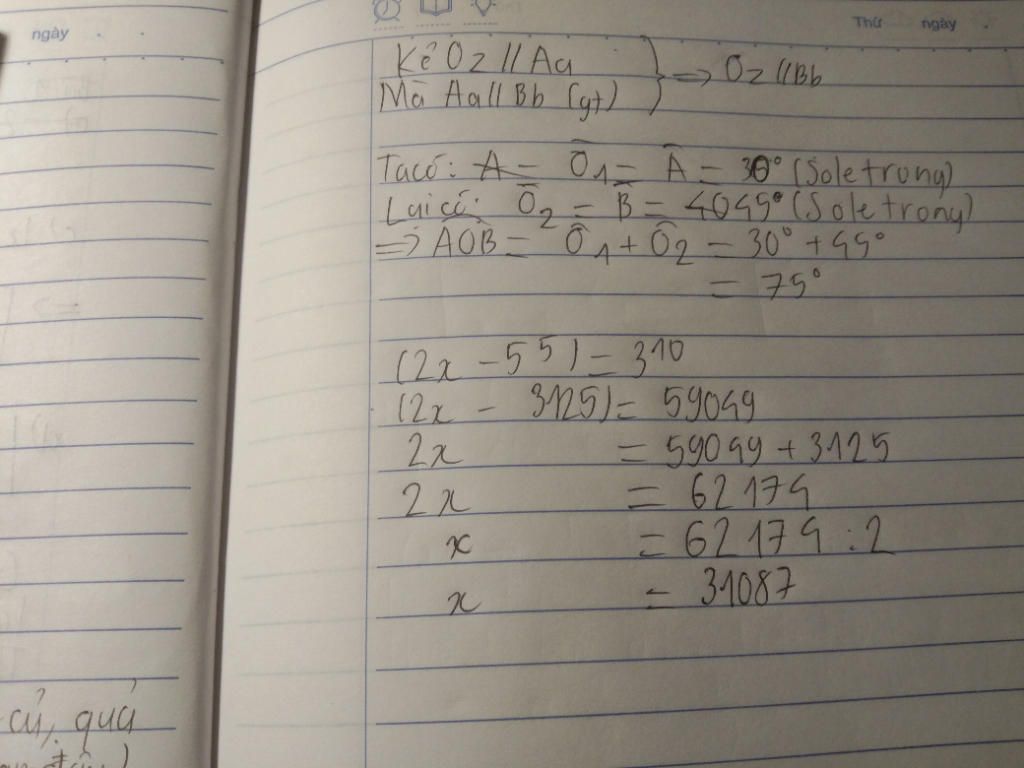 ngày . .
Thứ ngày .
Kẻ Oz // Aa
Mà Aa // Bb (gt)
} => Oz // Bb
Ta có: A = Ô1 = Â = 30° (Sole trong)
Lại có: Ô2 = B̂ = 4045° (Sole trong)
=> AOB = Ô1 + Ô2 = 30° + 45°
= 75°
(2x - 5 5) = 310
(2x - 3125) = 59049
2x = 59049 + 3125
2x = 62174
x = 62174 : 2
x = 31087
củ, quả